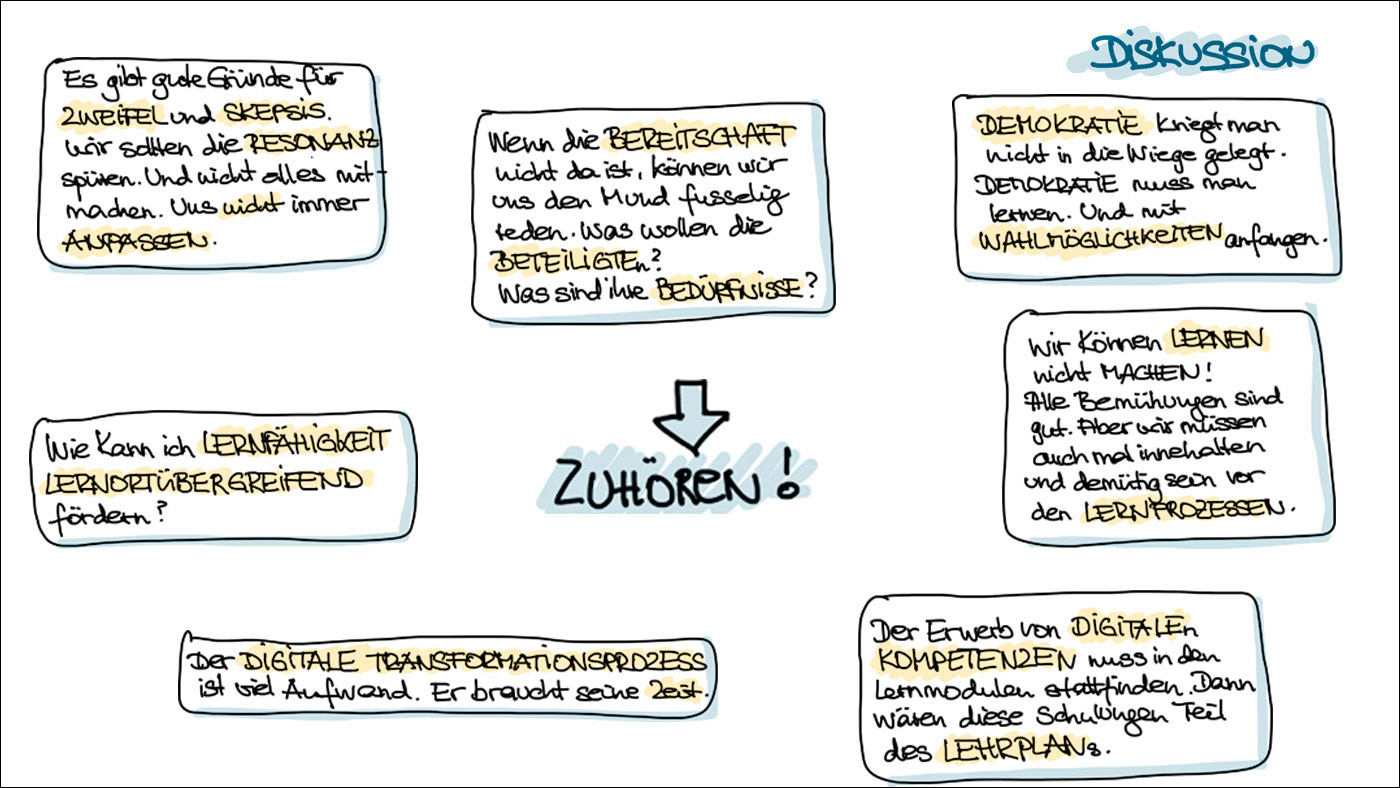 DISKUSSION
Es gibt gute Gründe für
ZWEIFEL und SKEPSIS.
wir sollten die RESONANZ
spüren. Und nicht alles mit-
machen. Uns nicht immer
ANPASSEN.
Wenn die BEREITSCHAFT
nicht da ist, können wir
uns den Mund fusselig
reden. Was wollen die
BETEILIGTEn?
Was sind ihre BEDÜRFNISSE?
DEMOKRATIE kriegt man
nicht in die Wiege gelegt.
DEMOKRATIE muss man
lernen. Und mit
WAHLMÖGLICHKEITEN anfangen.
Wir können LERNEN
nicht MACHEN!
Alle Bemühungen sind
gut. Aber wir müssen
auch mal innehalten
und demütig sein vor
den LERNPROZESSEN.
ZUHÖREN!
Wie kann ich LERNFÄHIGKEIT
LERNORTÜBERGREIFEND
fördern?
Der DIGITALE TRANSFORMATIONSPROZESS
ist viel Aufwand. Er braucht seine Zeit.
Der Erwerb von DIGITALEn
KOMPETENZEN muss in den
Lernmodulen stattfinden. Dann
wären diese Schulungen Teil
des LEHRPLANs.